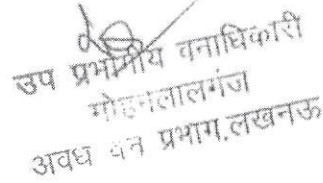 उप प्रभागीय वनाधिकारी
मोहनलालगंज
अवध वन प्रभाग,लखनऊ